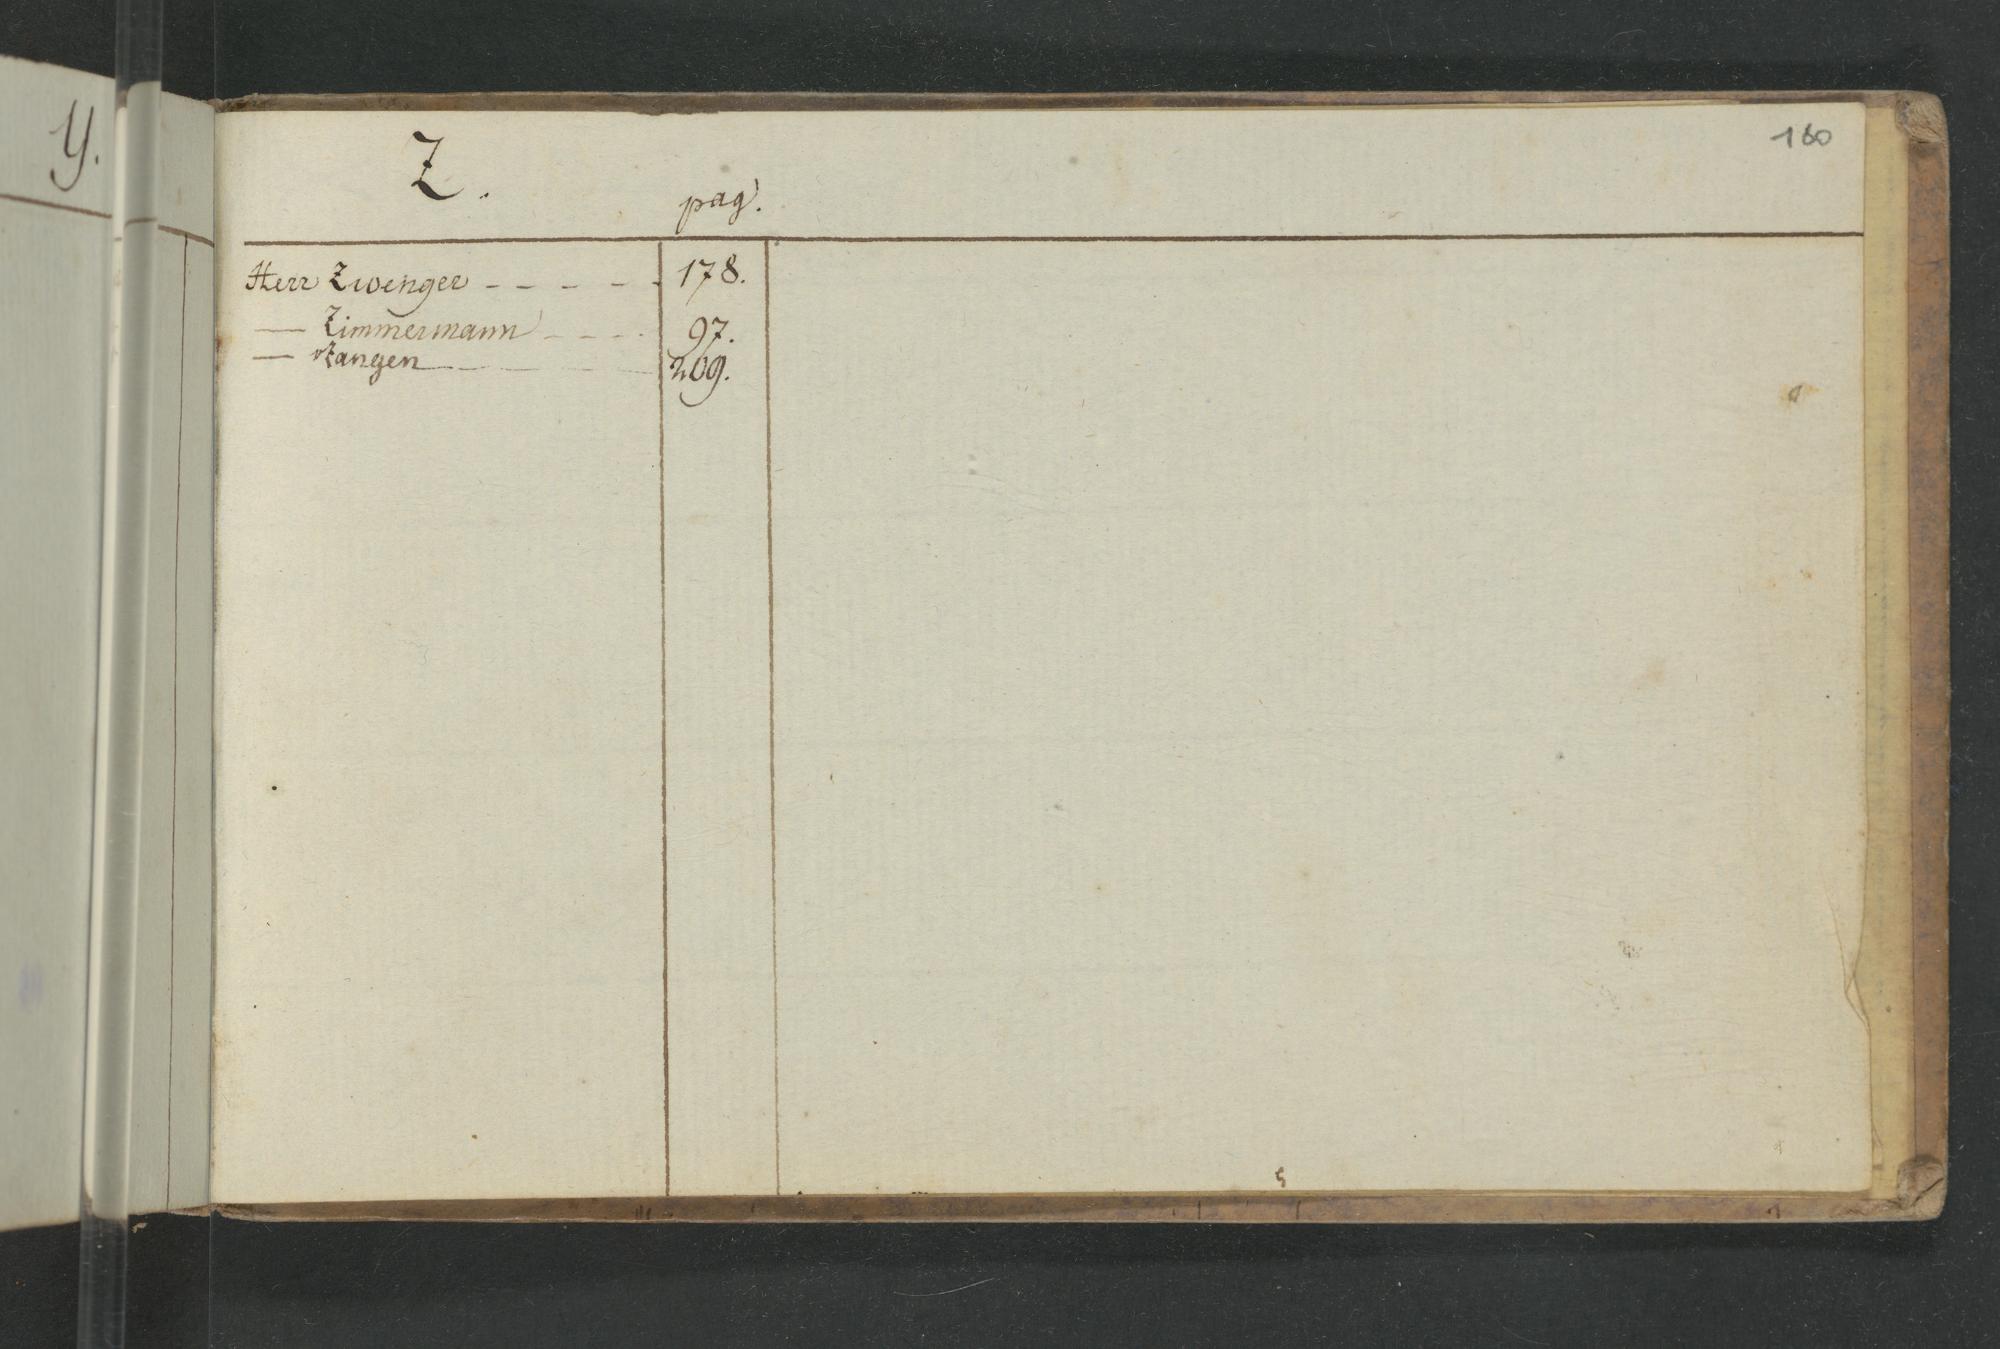 y.
Z.
160
pag.
Herr Zwenger - - - - - 178.
— Zimmermann - - - - 97.
— Zangen - - - - 209.